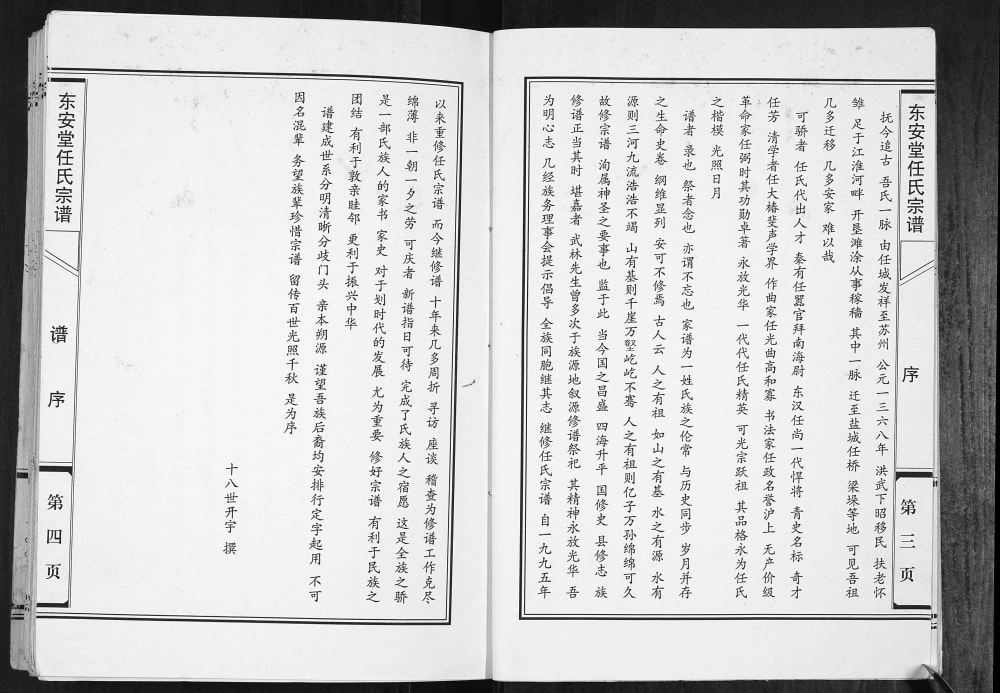 东安堂任氏宗谱
序
第三页
抚今追古 吾氏一脉 由任城发祥至苏州 公元一三六八年 洪武下昭移民 扶老怀
雏 足于江淮河畔 开垦滩涂从事稼穑 其中一脉 迁至盐城任桥 梁垛等地 可见吾祖
几多迁移 几多安家 难以哉
可骄者 任氏代出人才 秦有任嚣官拜南海尉 东汉任尚一代悍将 青史名标 奇才
任芳 清学者任大椿斐声学界 作曲家任光曲高和寡 书法家任政名誉沪上 无产价级
革命家任弼时其功勋卓著 永放光华 一代代任氏精英 可光宗跃祖 其品格永为任氏
之楷模 光照日月
谱者 录也 祭者念也 亦谓不忘也 家谱为一姓氏族之伦常 与历史同步 岁月并存
之生命史卷 纲维显列 安可不修焉 古人云 人之有祖 如山之有基 水之有源 水有
源则三河九流浩浩不竭 山有基则千崖万壑屹屹不骞 人之有祖则亿子万孙绵绵可久
故修宗谱 洵属神圣之要事也 监于此 当今国之昌盛 四海升平 国修史 县修志 族
修谱正当其时 堪嘉者 武林先生曾多次于族源地叙源修谱祭祀 其精神永放光华 吾
为明心志 几经族务理事会提示倡导 全族同胞继其志 继修任氏宗谱 自一九九五年
以来重修任氏宗谱 而今继修谱 十年来几多周折 寻访 座谈 稽查为修谱工作克尽
绵薄 非一朝一夕之劳 可庆者 新谱指日可待 完成了氏族人之宿愿 这是全族之骄
是一部氏族人的家书 家史 对于划时代的发展 尤为重要 修好宗谱 有利于民族之
团结 有利于敦亲睦邻 更利于振兴中华
谱建成世系分明清晰分歧门头 亲本朔源 谨望吾族后裔均安排行定字起用 不可
因名混辈 务望族辈珍惜宗谱 留传百世光照千秋 是为序
十八世开宇 撰
东安堂任氏宗谱
谱序
第四页